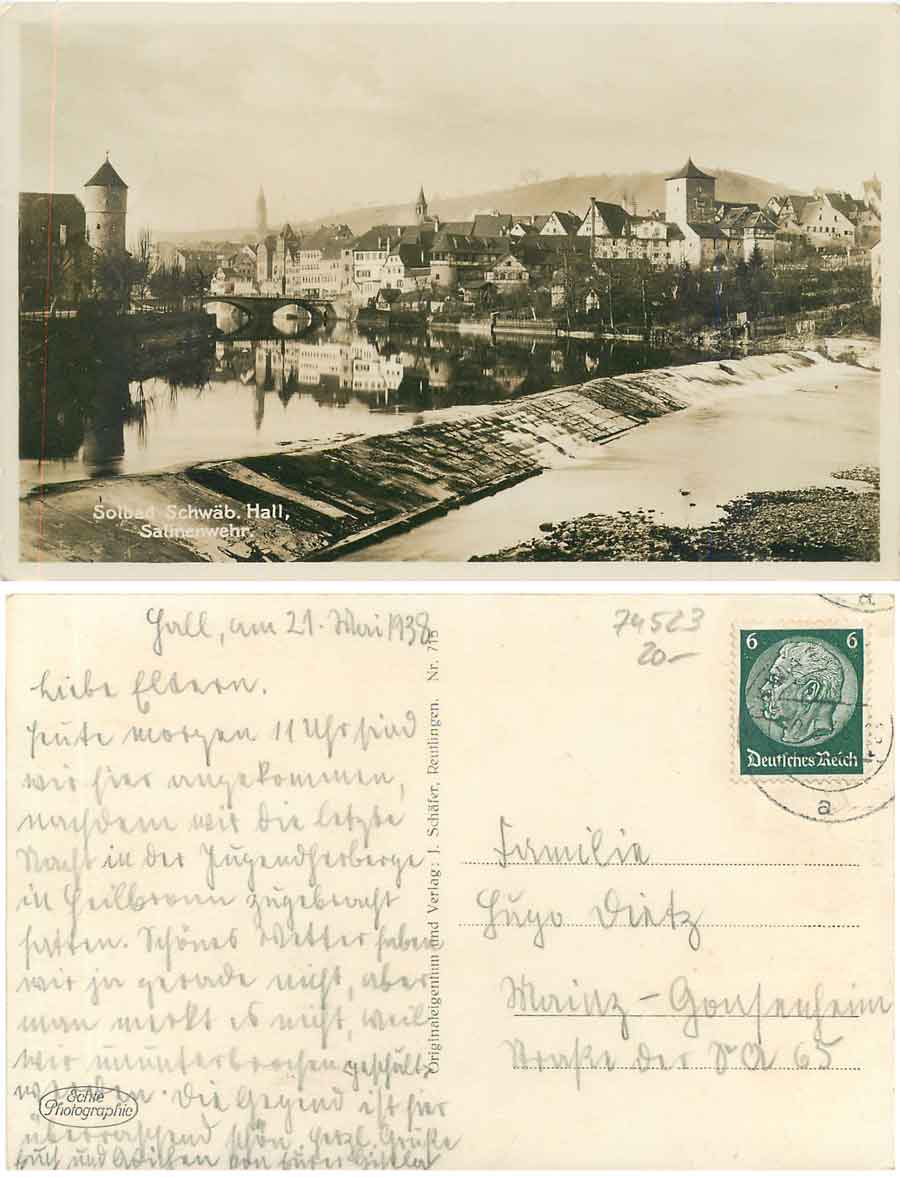 Solbad Schwäb. Hall,
Salinenwehr.
Hall, am 21. Mai 1938
Liebe Eltern.
Heute morgen 11 Uhr sind
wir hier angekommen,
nachdem wir die letzte
Nacht in der Jugendherberge
in Heilbronn zugebracht
hatten. Schönes Wetter haben
wir ja gerade nicht, aber
man merkt es nicht, weil
wir ununterbrochen
werden. Die Gegend ist hier
überraschend schön. Herzl. Grüße
Euch und von Eurer
Echte
Photographie
Originaleigentum und Verlag: J. Schäfer, Reutlingen. Nr. 715
74523
20–
6 6
Deutsches Reich
a
a
Familie
Hugo Dietz
Mainz-Gonsenheim
Straße der SA 65